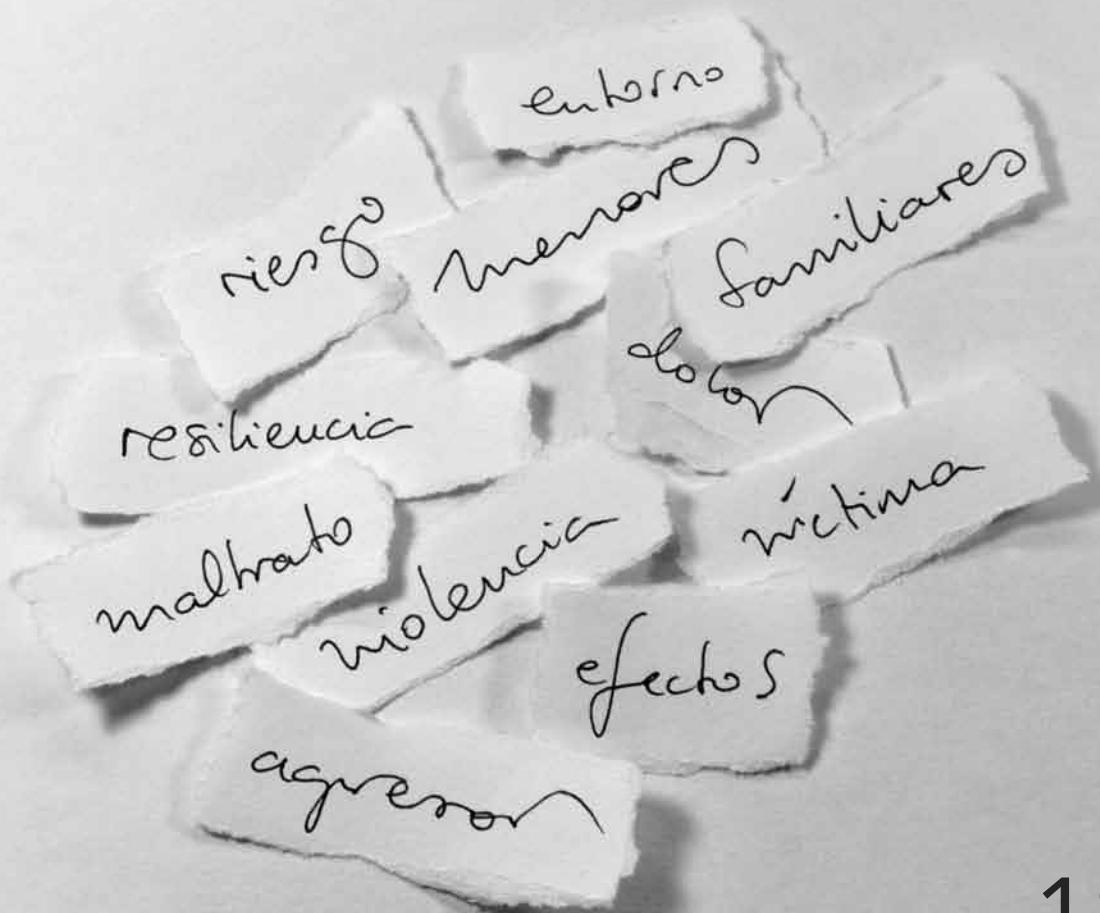 entorno
menores
familiares
riesgo
dolor
resiliencia
víctima
maltrato
violencia
efectos
agresor
1